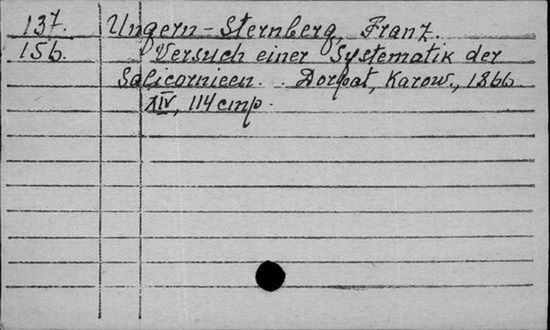 137. Ungern-Sternberg, Franz.
156. Versuch einer Systematik der
Salicornieen. Dorpat, Karow., 1866.
XIV, 114 стр.